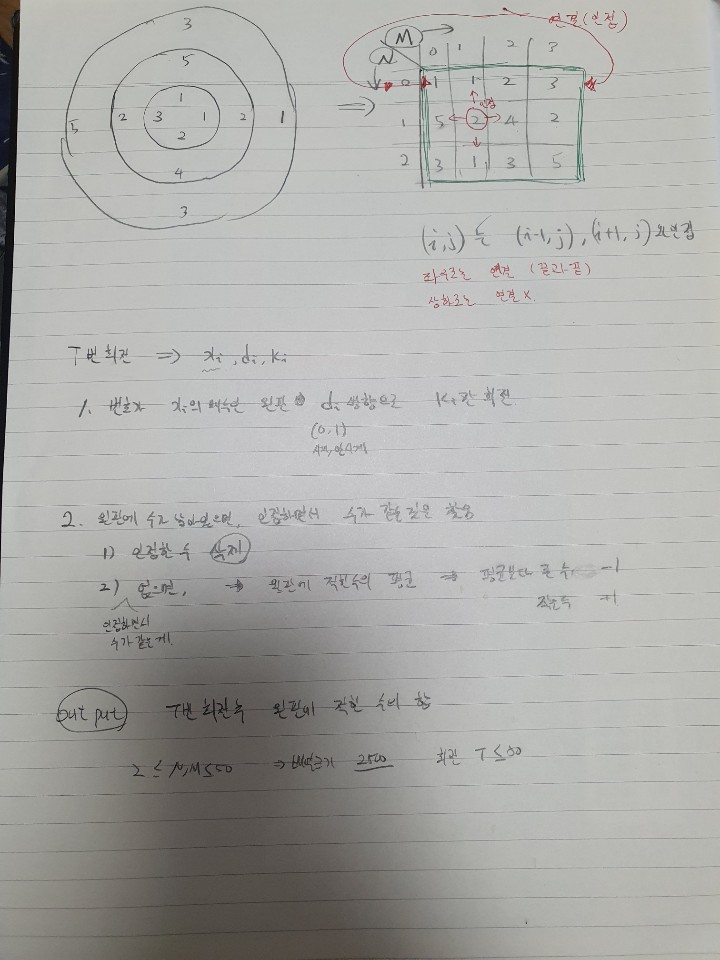 3
5
1
5 2 3 1 2 1
2
4
3
연결(인접)
M
N
0 1 2 3
0 1 1 2 3
인접
1 5 2 4 2
2 3 1 3 5
(i,j)는 (i-1,j), (i+1,j)와 인접
좌우로는 연결 (끝과끝)
상하로는 연결 X.
T번 회전 ⇒ xi, di, ki
1. 번호가 xi의 배수인 원판 di 방향으로 Ki칸 회전
(0,1)
시계, 반시계
2. 원판에 수가 남아있으면, 인접하면서 수가 같은 것을 찾음
1) 인접한 수 삭제
2) 없으면, → 원판에 적힌수의 평균 ⇒ 평균보다 큰 수 -1
인접하면서 작은수 +1
수가 같은게.
out put T번 회전후 원판에 적힌 수의 합
2 ≤ N,M ≤ 50 ⇒ 배열크기 2500 회전 T ≤ 50